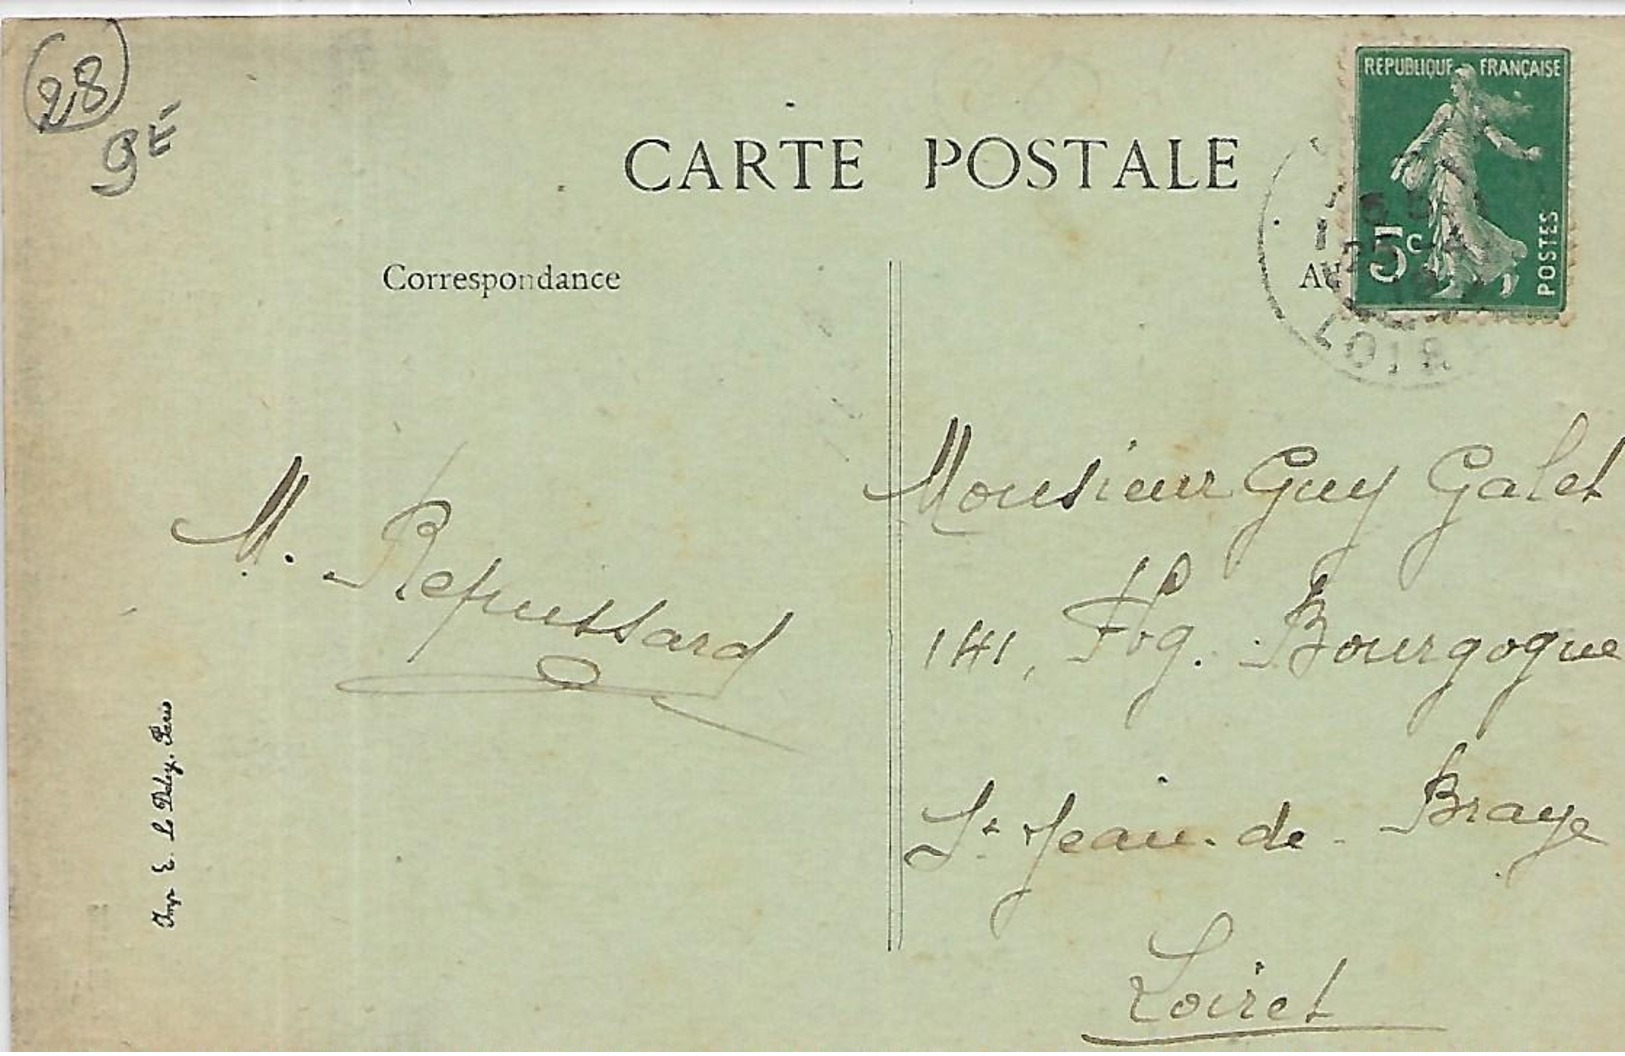 28
9E
CARTE POSTALE
REPUBLIQUE FRANÇAISE
5c
POSTES
Correspondance
LOIR
M. Repussard
Monsieur Guy Galet
141, Fbg. Bourgogne
St Jean-de-Braye
Loiret
Imp. E. Le Deley, Paris